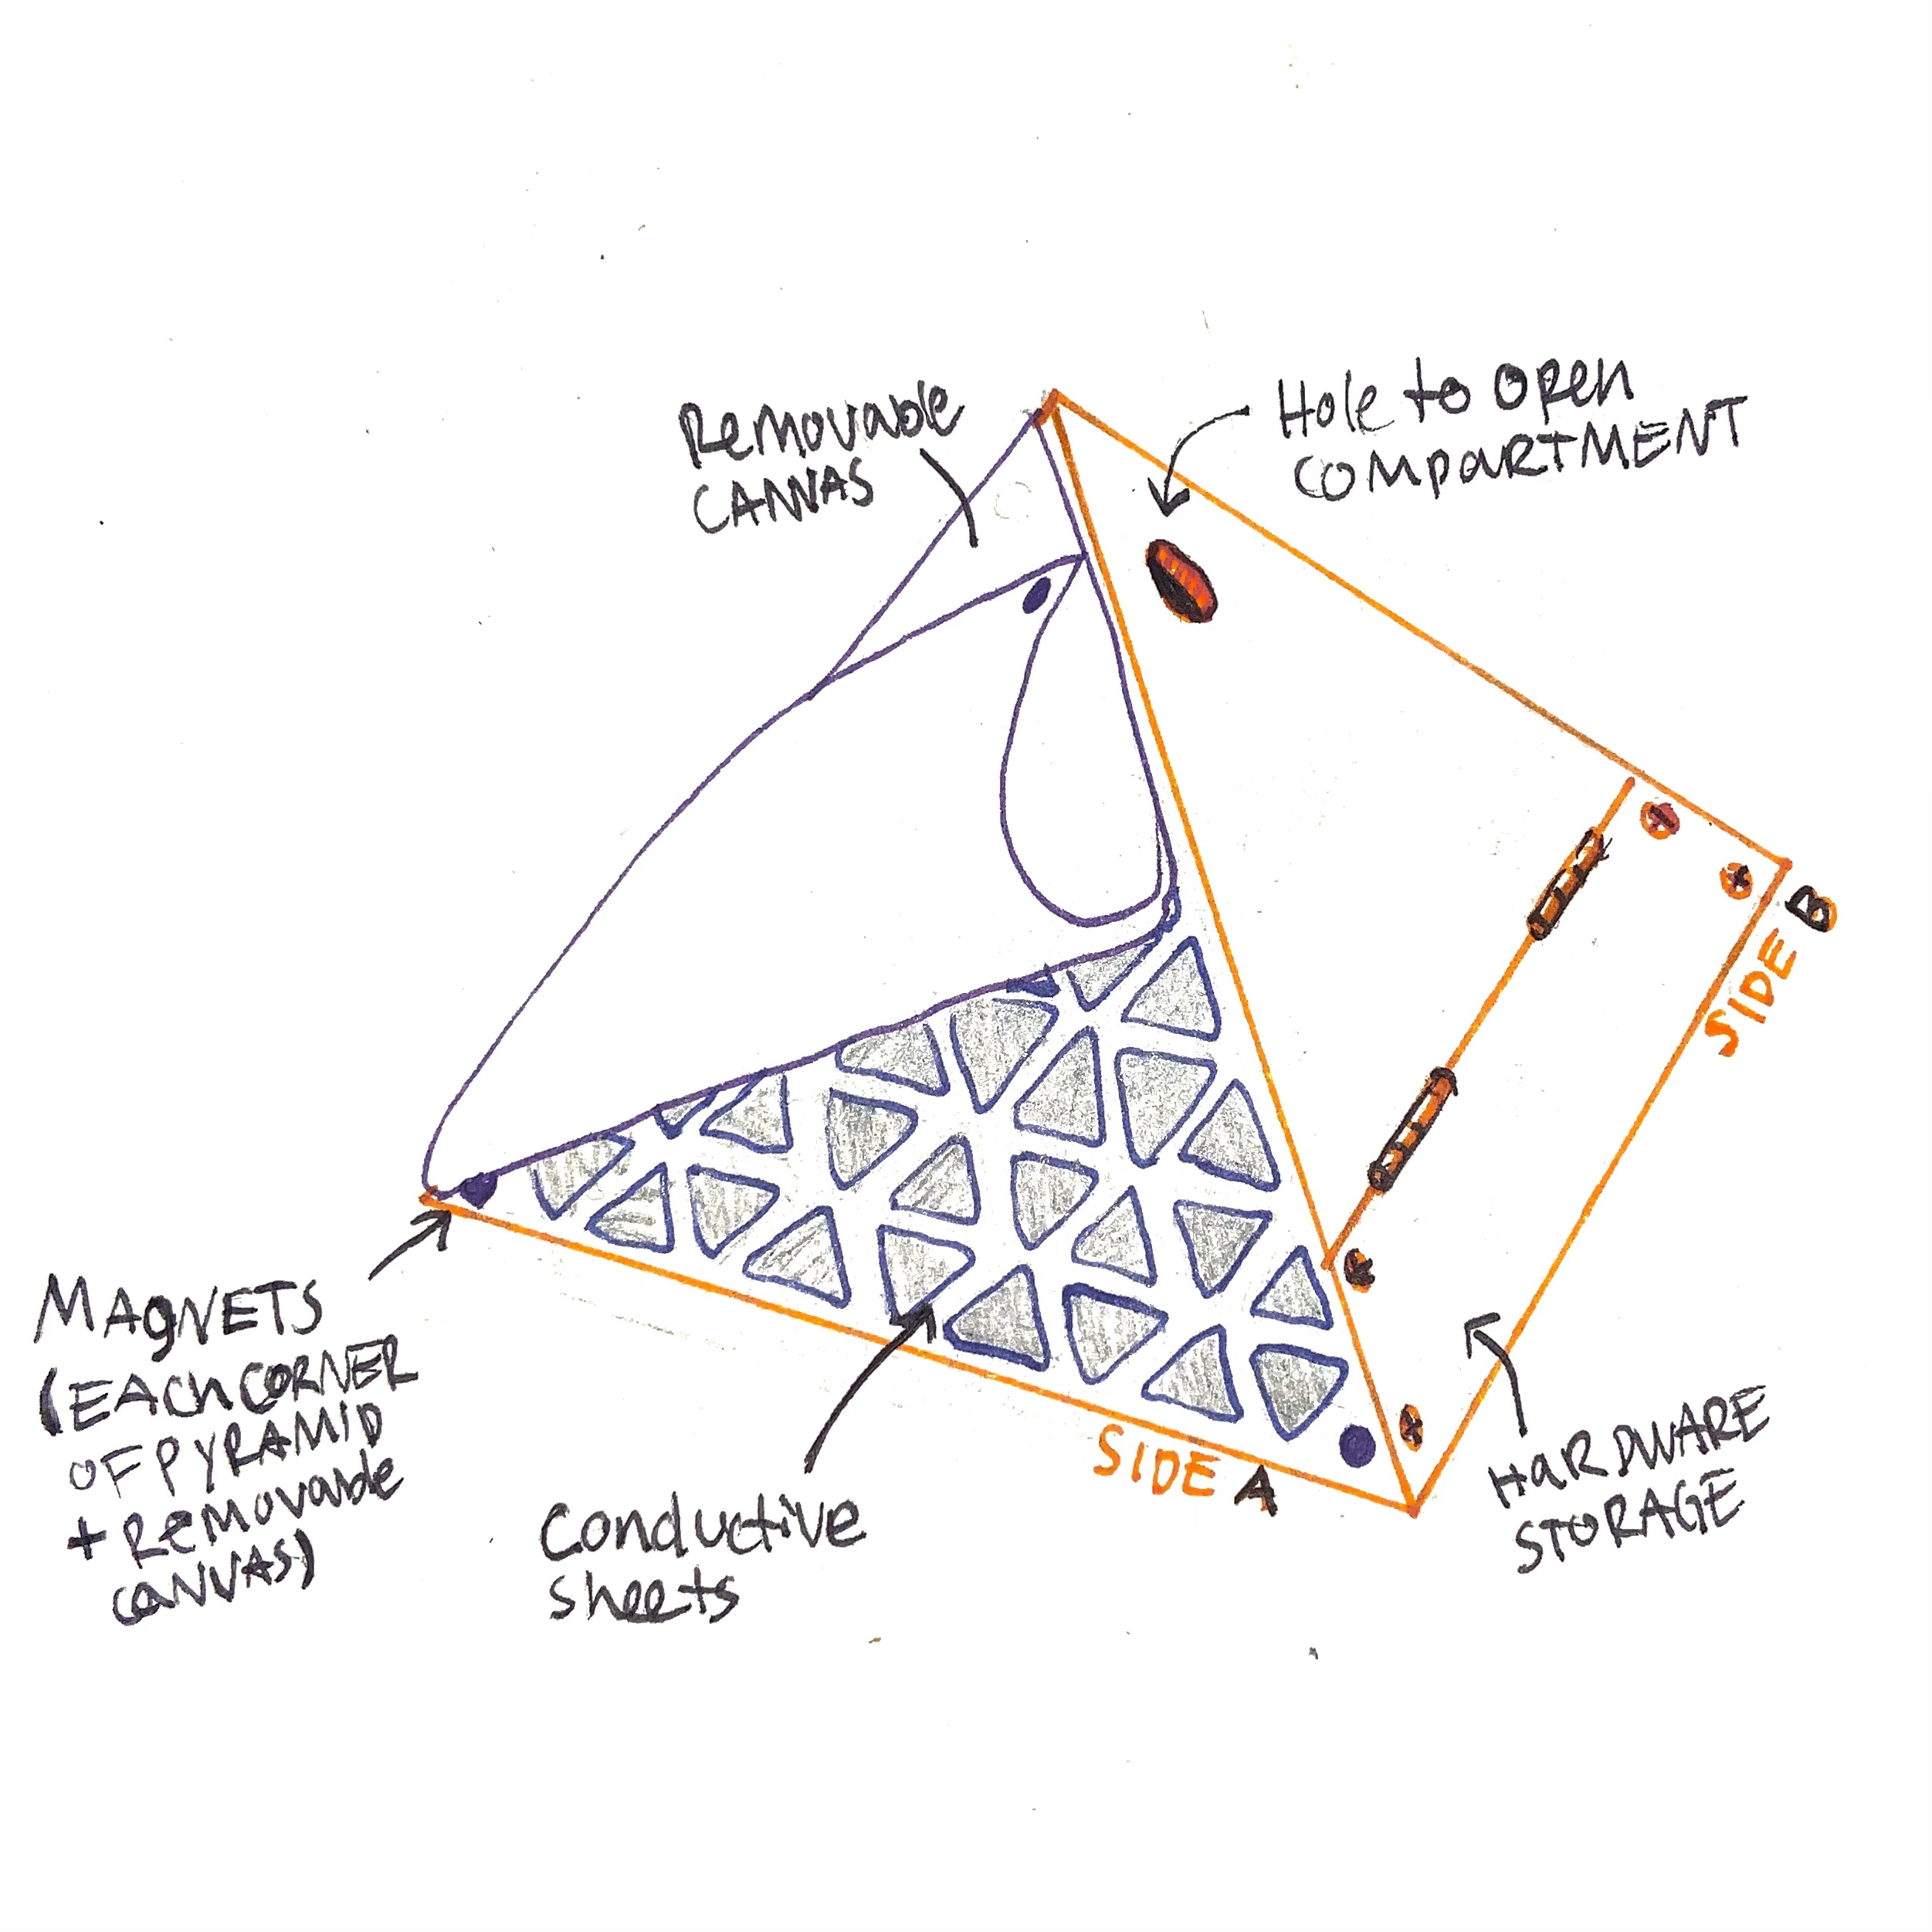 Removable
CANVAS
Hole to open
COMPARTMENT
SIDE B
MAgNETS
(EACh CORNER
OF PYRAMID
+ Removable
CANVAS)
Conductive
sheets
SIDE A
HaRDWARE
STORAGE